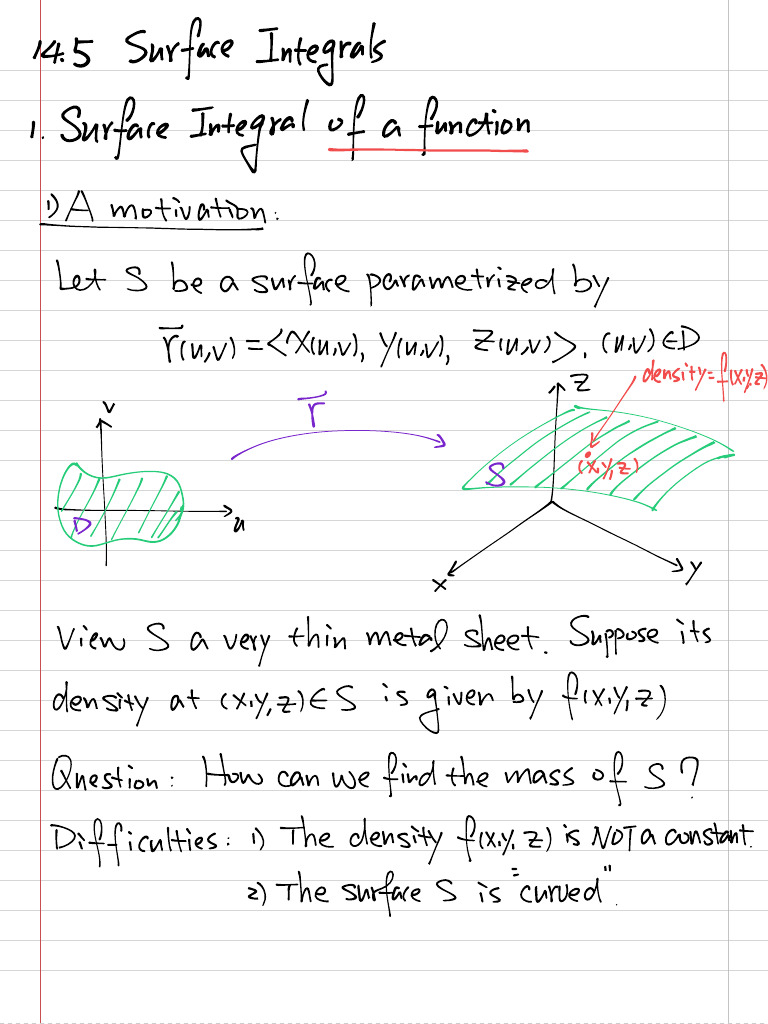 14.5 Surface Integrals
1. Surface Integral of a function
1) A motivation:
Let S be a surface parametrized by
r⃗(u,v) = <X(u,v), Y(u,v), Z(u,v)>, (u,v) ∈ D
density = f(x,y,z)
z
v
r⃗
S
(x,y,z)
D
u
x
y
View S a very thin metal sheet. Suppose its
density at (x,y,z) ∈ S is given by f(x,y,z)
Question: How can we find the mass of S?
Difficulties: 1) The density f(x,y,z) is NOT a constant.
2) The surface S is "curved".